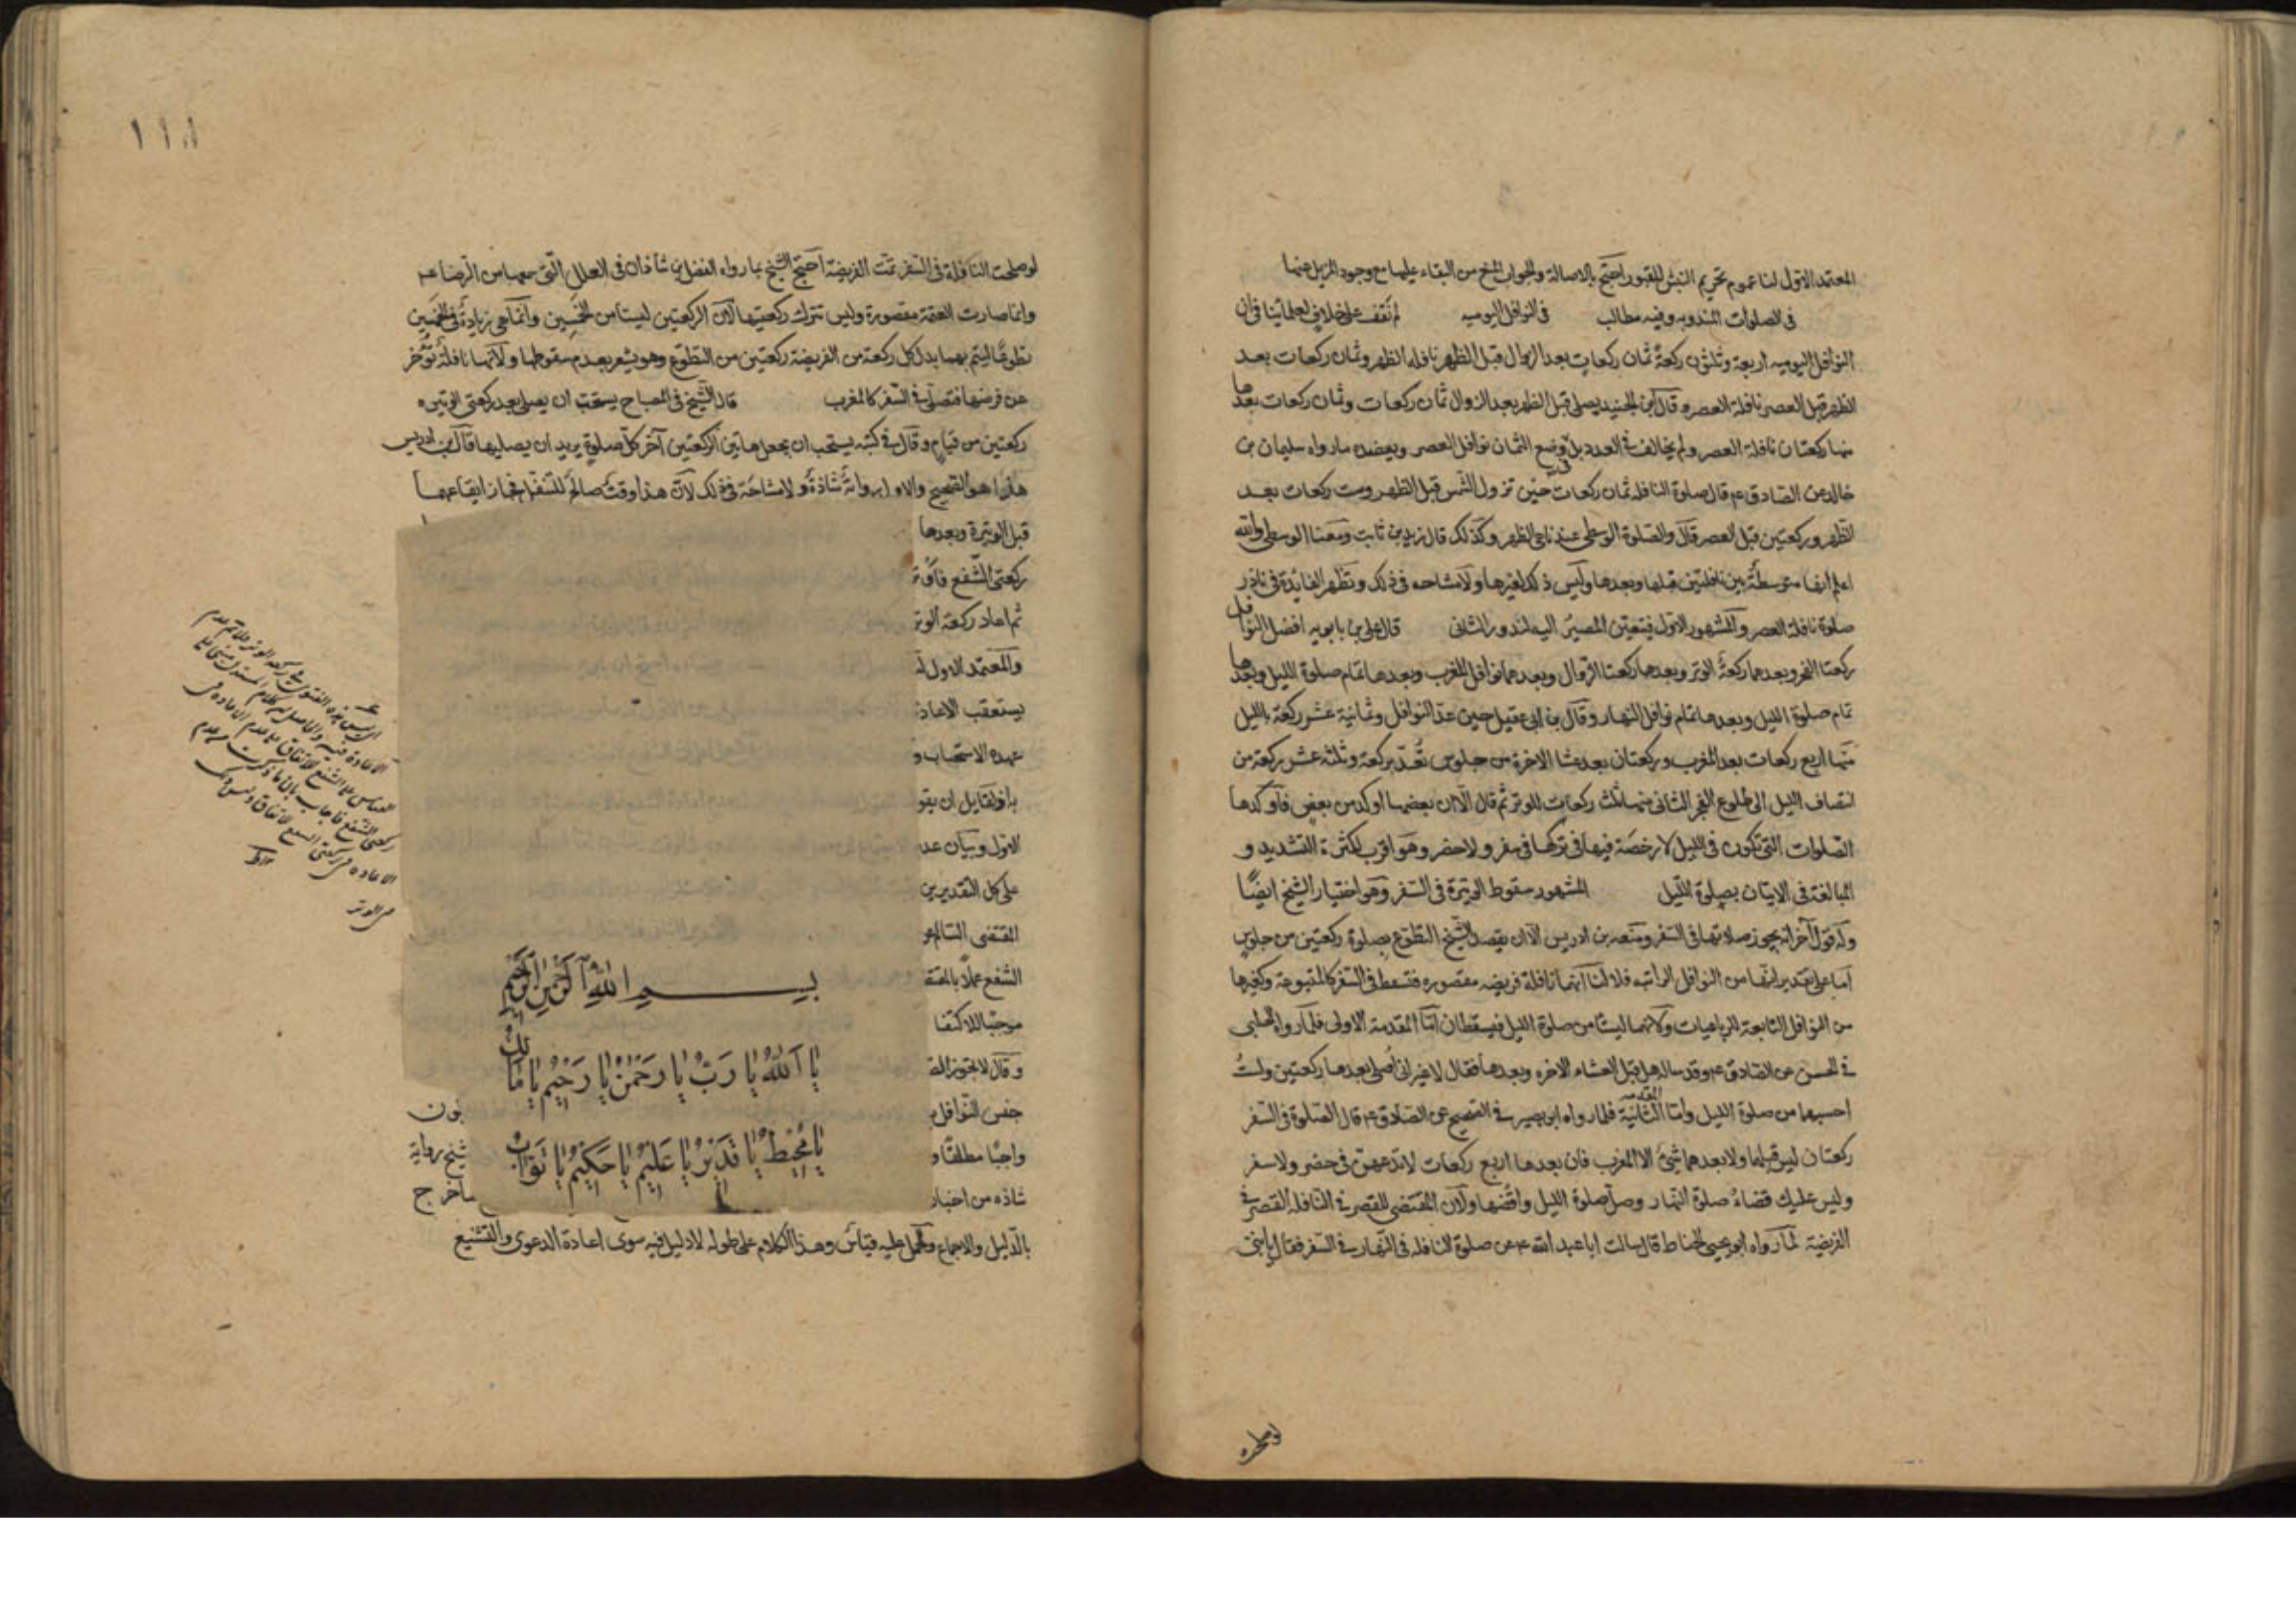 المعتمد الاول لنا عموم تحريم النبش للقبور احتج بالاصالة والجواب المنع من البقاء عليها مع وجود المزيل عنها
فى الصلوات المندوبه وفيه مطالب فى النوافل اليوميه لم نقف على خلاف لعلمائنا فى ان
النوافل اليوميه اربعة وثلثون ركعة ثمان ركعات بعد الزوال قبل الظهر نافله الظهر وثمان ركعات بعد
الظهر قبل العصر نافلة العصر وقال ابن الجنيد يصلى قبل الظهر بعد الزوال ثمان ركعات وثمان ركعات بعدها
منها ركعتان نافلة العصر ولم يخالف فى العدد بل وضع الثمان نوافل العصر ويعضده ما رواه سليمان بن
خالد عن الصادق ع قال صلوة النافله ثمان ركعات حين تزول الشمس قبل الظهر وست ركعات بعد
الظهر وركعتين قبل العصر قال والصلوة الوسطى عندنا هى الظهر وكذلك قال زيد بن ثابت ومعنا الوسطى والله
اعلم انها متوسطة بين نافلتين قبلها وبعدها وليس ذلك لغيرها ولا مشاحه فى ذلك وتظهر الفايدة فى ناذر
صلوة نافلة العصر والمشهور الاول فيتعين المصير اليه لندور الثانى قال على بن بابويه افضل النوافل
ركعتا الفجر وبعدهما ركعة الوتر وبعدها ركعتا الزوال وبعدهما نوافل المغرب وبعدها تمام صلوة الليل وبعدها
تمام صلوة الليل وبعدها تمام نوافل النهار وقال بن ابى عقيل حين عد النوافل وثمانية عشر ركعة بالليل
منها اربع ركعات بعد المغرب وركعتان بعد عشا الاخرة من جلوس تعد بركعة وثلثه عشر ركعة من
انتصاف الليل الى طلوع الفجر الثانى منها ثلث ركعات للوتر ثم قال الا ان بعضها اوكد من بعض فاوكدها
الصلوات التى تكون فى الليل لا رخصة فيها فى تركها فى سفر ولا حضر وهو اقرب لكثرة التشديد و
المبالغة فى الاتيان بصلوة الليل المشهور سقوط الوتيرة فى السفر وهو اختيار الشيخ ايضا
وله قول آخر انه يجوز صلاتها فى السفر ومنعه بن ادريس الا ان يقصد الشيخ التطوع بصلوة ركعتين من جلوس
اما على تقدير انها من النوافل الراتبه فلا لنا انها نافلة فريضه مقصوره فتسقط فى السفر كالمتبوعة وكغيرها
من النوافل التابعة للرباعيات ولانهما ليستا من صلوة الليل فيسقطان اما المقدمة الاولى فلما رواه الحلبى
فى الحسن عن الصادق ع وقد ساله هل قبل العشاء الاخره وبعدها فقال لا غير انى اصلى بعدها ركعتين ولست
احسبهما من صلوة الليل واما المقدمه الثانية فلما رواه ابو بصير فى الصحيح عن الصادق ع قال الصلوة فى السفر
ركعتان ليس قبلهما ولا بعدهما شئ الا المغرب فان بعدها اربع ركعات لا تدعهن فى حضر ولا سفر
وليس عليك قضاء صلوة النهار وصل صلوة الليل واقضها ولان المقتضى للقصر فى النافله القصر فى
الفريضة لما رواه ابو يحيى الحناط قال سالت ابا عبد الله ع عن صلوة النافله فى النهار فى السفر فقال يا بنى
لو صلحت النافلة فى السفر تمت الفريضة احتج الشيخ بما رواه الفضل بن شاذان فى العلل التى سمعها من الرضا ع
وانما صارت العتمة مقصورة وليس تترك ركعتيها لان الركعتين ليستا من الخمسين وانما هى زيادة فى الخمسين
تطوعا ليتم بهما بدل كل ركعة من الفريضة ركعتين من التطوع وهو يشعر بعدم سقوطها ولانها نافلة تؤخر
عن فرضها فتصلى فى السفر كالمغرب قال الشيخ فى المصباح يستحب ان يصلى بعد ركعتى الوتيره
ركعتين من قيام وقال فى كتبه يستحب ان يجعل هاتين الركعتين آخر كل صلوة يريد ان يصليها قال بن ادريس
هذا هو الصحيح والاول رواية شاذة ولا مشاحة فى ذلك لان هذا وقت صالح للتنفل فجاز ايقاعهما
قبل الوتيرة وبعدها
ركعتى الشفع فاوت
ثم اعاد ركعة الوتر
والمعتمد الاول
يستعقب الاعاد
عهده الاستحباب و
به او لقايل ان يقو
الاول وبيان عد
على كل التقديرين
المقتضى السالم عن
الشفع عملا بالمقتض
موجبا للاكتفا
وقال لا يجوز الص
جنس النوافل
واجبا مطلقا و شيخ برواية
شاذه من اخبار
بالدليل والاجماع والحمل عليه قياس وهذا الكلام على طوله لا دليل فيه سوى اعادة الدعوى والتشنيع
بسم الله الرحمن الرحيم
يا الله يا رب يا رحمن يا رحيم يا مالك
يا محيط يا قدير يا عليم يا حكيم يا تواب